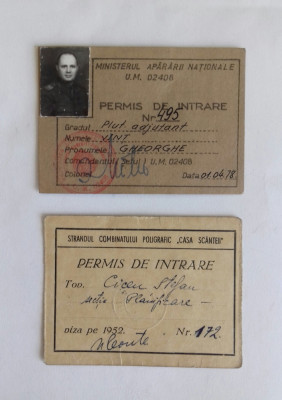 MINISTERUL APĂRĂRII NAȚIONALE
U.M. 02406
PERMIS DE INTRARE
Nr. 495
Gradul Plut. adjutant
Numele VINT
Pronumele GHEORGHE
Comandantul U.M. 02406
Colonel Data 01.04.78
STRANDUL COMBINATULUI POLIGRAFIC „CASA SCÂNTEII"
PERMIS DE INTRARE
Tov. Cigeu Ștefan
secția Planificare —
viza pe 1952. Nr. 172.